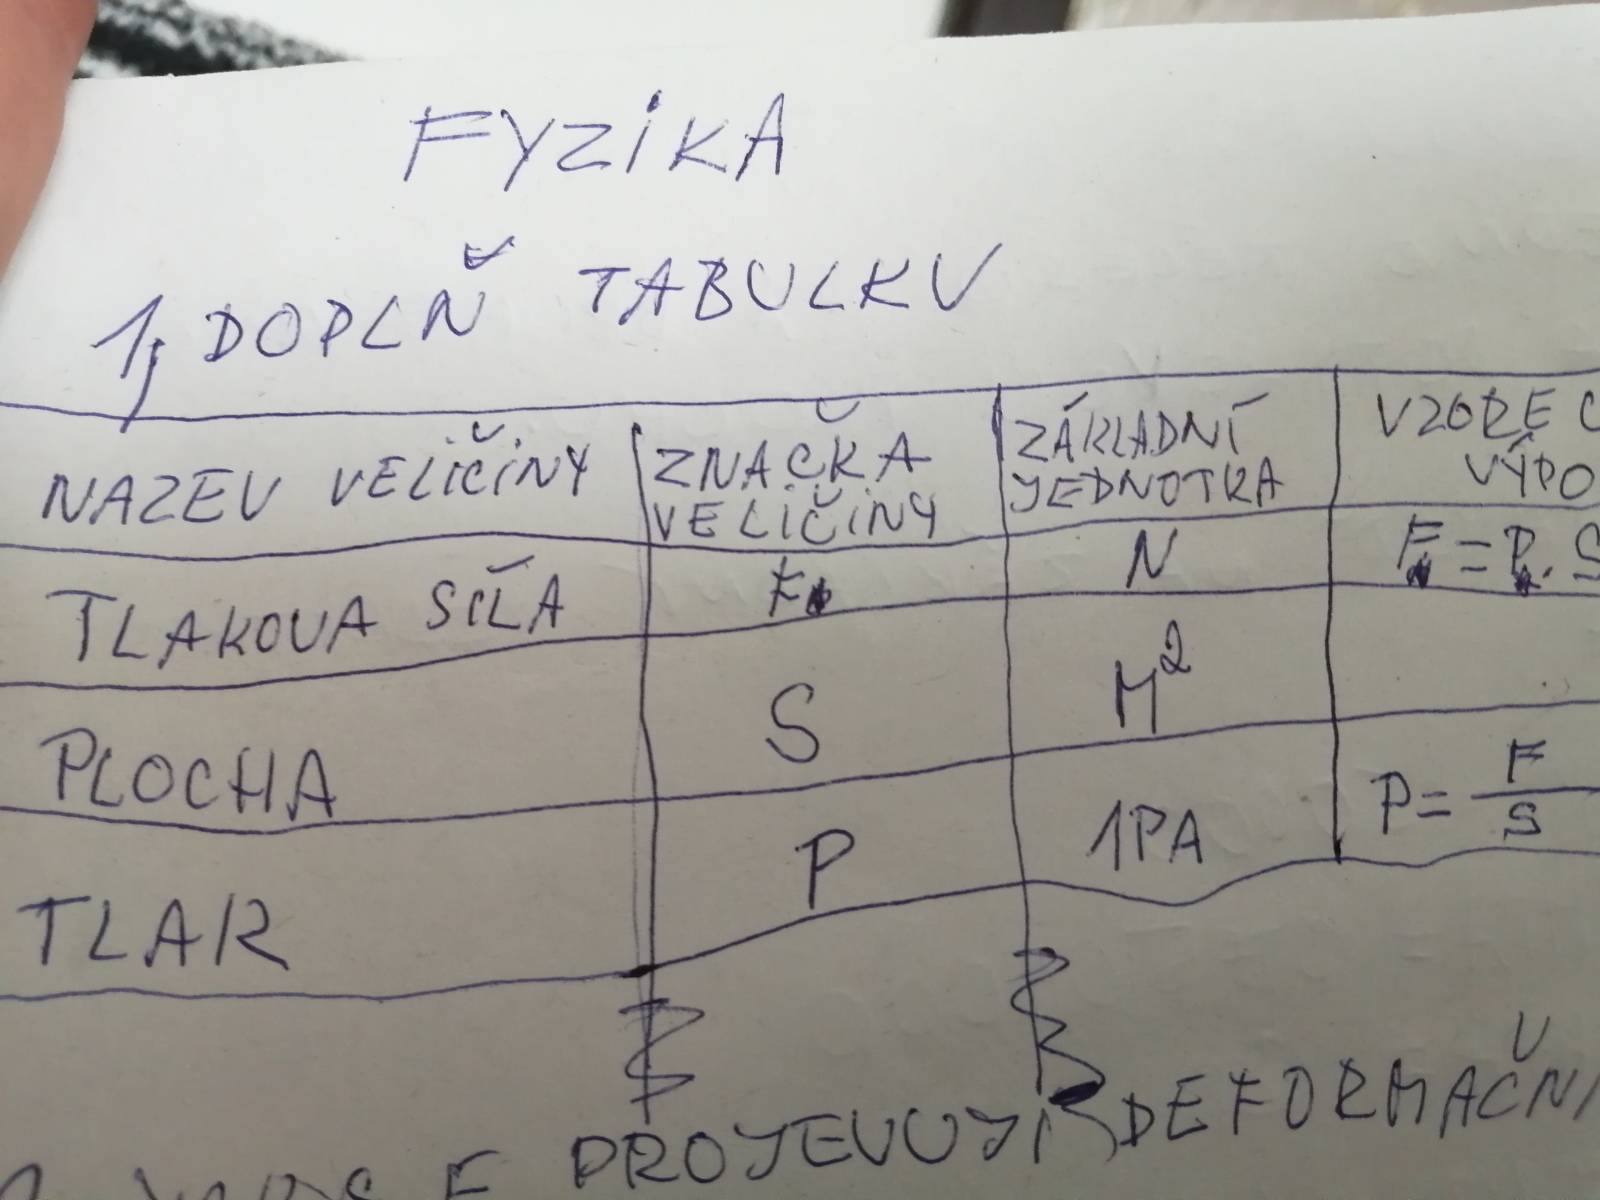 FYZIKA
1, DOPLŇ TABULKU
NAZEV VELIČINY ZNAČKA VELIČINY ZÁKLADNÍ JEDNOTKA VZOREC VÝPO
TLAKOVA SÍLA F N F = P. S
PLOCHA S M²
TLAK P 1PA P = F/S
SE PROJEVUJÍ DEFORMAČNÍ